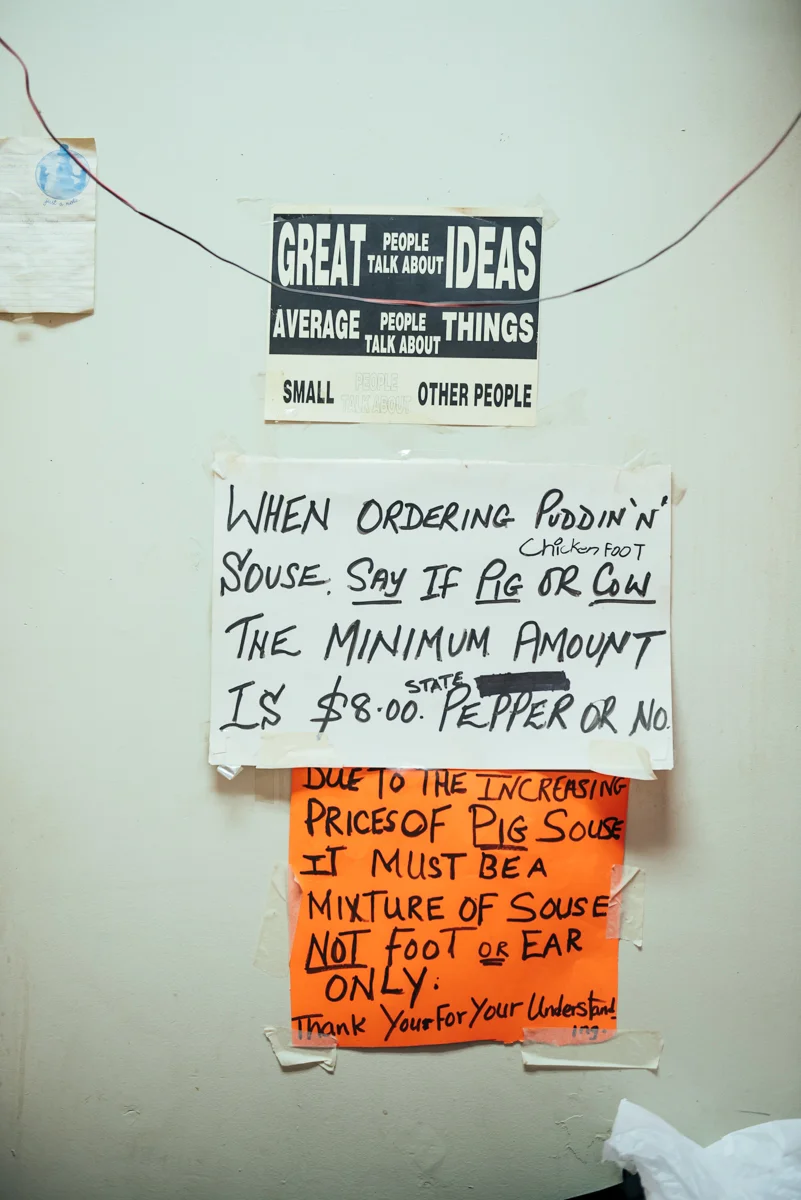 GREAT PEOPLE TALK ABOUT IDEAS
AVERAGE PEOPLE TALK ABOUT THINGS
SMALL PEOPLE TALK ABOUT OTHER PEOPLE
WHEN ORDERING PUDDIN'N'
Chicken FOOT
SOUSE. SAY IF PIG OR COW
THE MINIMUM AMOUNT
STATE
IS $8.00. PEPPER OR NO.
DUE TO THE INCREASING
PRICES OF PIG SOUSE
IT MUST BE A
MIXTURE OF SOUSE
NOT FOOT OR EAR
ONLY.
Thank You For Your Understand
ing.